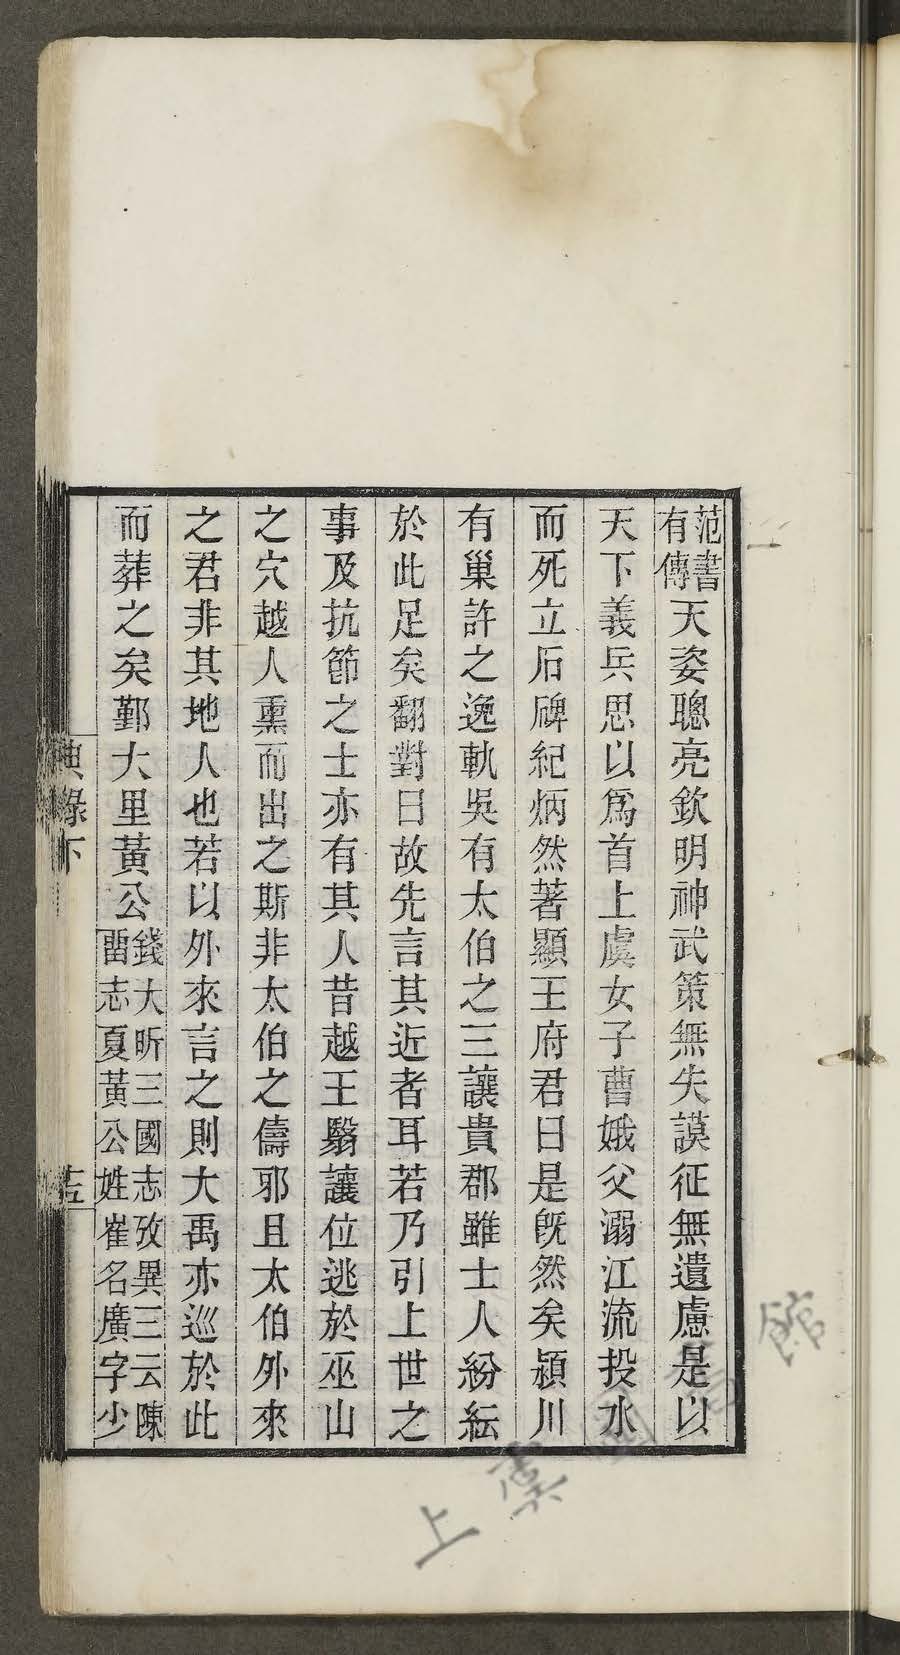 范書有傳天姿聰亮欽明神武策無失謨征無遺慮是以
天下義兵思以爲首上虞女子曹娥父溺江流投水
而死立石碑紀炳然著顯王府君曰是旣然矣潁川
有巢許之逸軌吳有太伯之三讓貴郡雖士人紛紜
於此足矣翻對曰故先言其近者耳若乃引上世之
事及抗節之士亦有其人昔越王翳讓位逃於巫山
之穴越人熏而出之斯非太伯之儔邪且太伯外來
之君非其地人也若以外來言之則大禹亦巡於此
而葬之矣鄞大里黃公錢大昕三國志攷異三云陳畱志夏黃公姓崔名廣字少
典錄下
十五
上虞圖書館